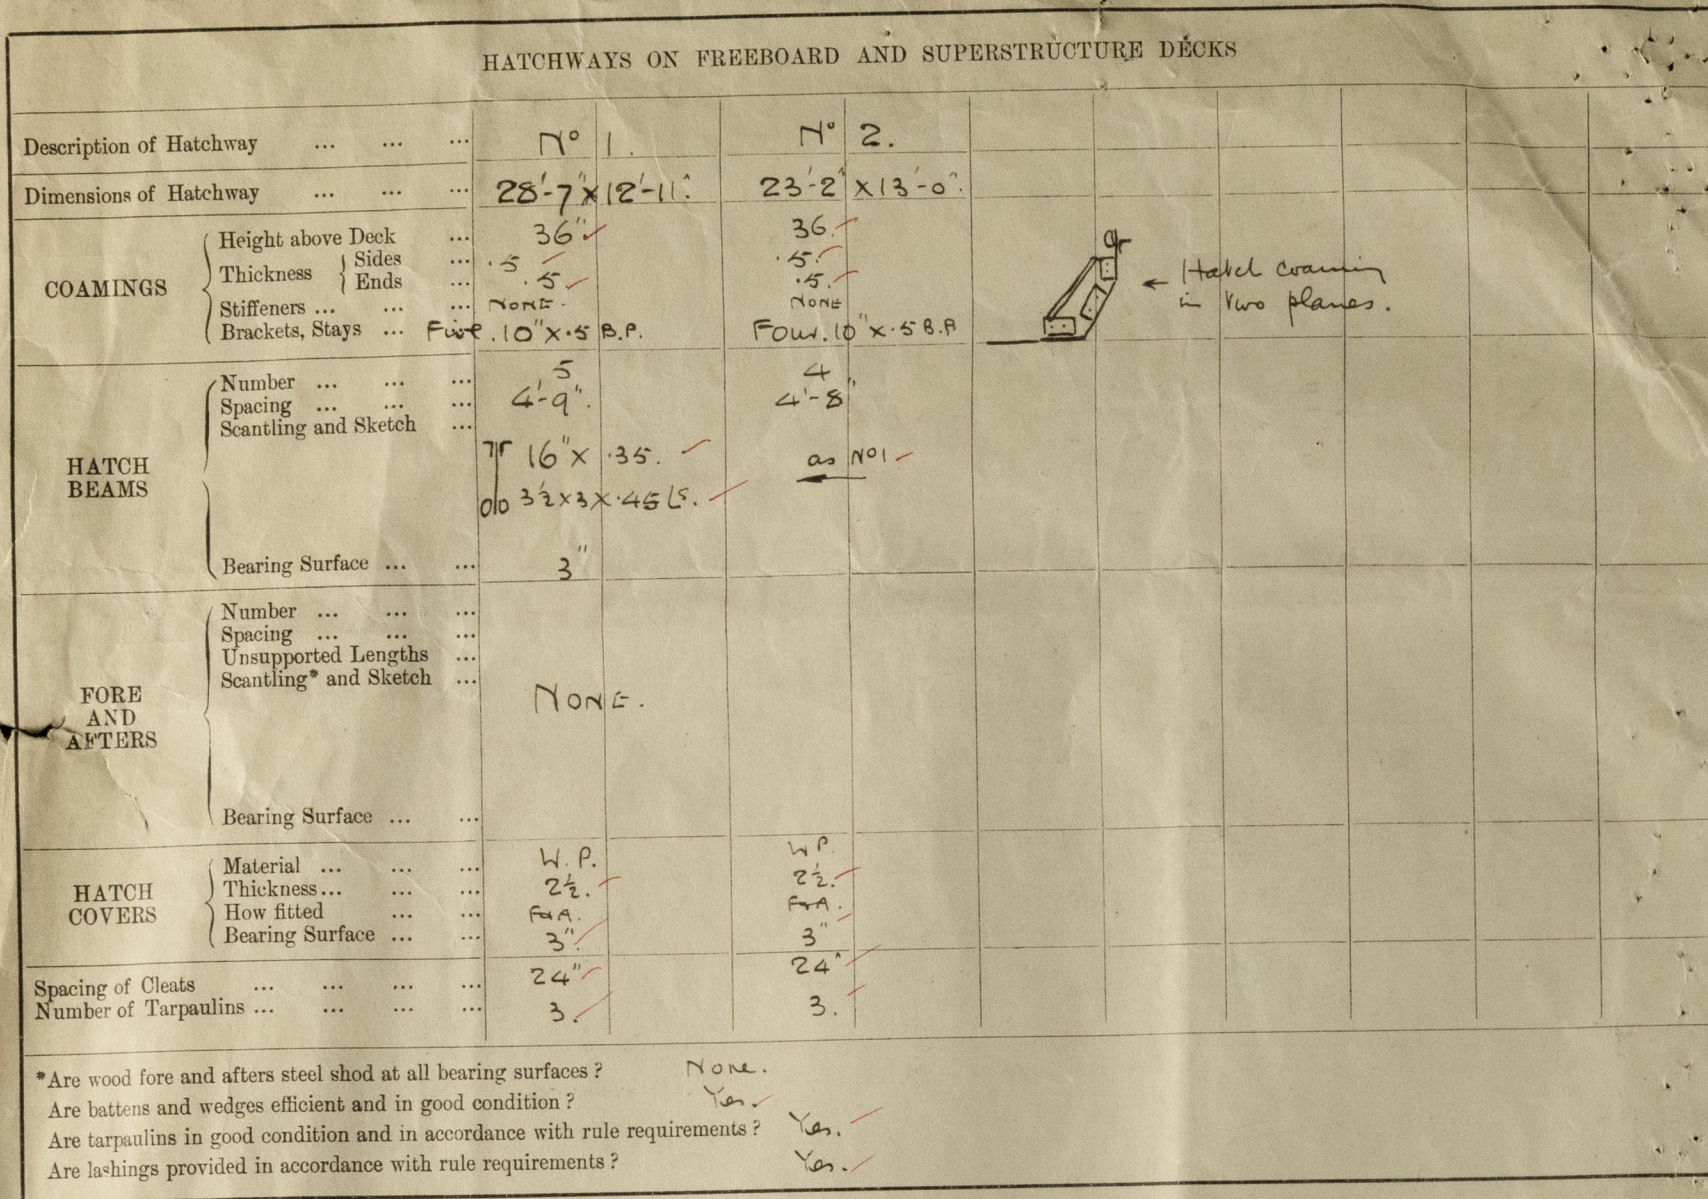 HATCHWAYS ON FREEBOARD AND SUPERSTRUCTURE DECKS
Description of Hatchway ... ... ... No 1. No 2.
Dimensions of Hatchway ... ... ... 28'-7" x 12'-11". 23'-2" x 13'-0".
COAMINGS
Height above Deck ... 36" 36.
Thickness Sides ... .5 .5.
Ends ... .5 .5.
Stiffeners ... ... ... NONE. NONE
Brackets, Stays ... Five. 10" x .5 B.P. Four. 10" x .5 B.P
← Hatch coaming
in two planes.
HATCH BEAMS
Number ... ... ... 5 4
Spacing ... ... ... 4'-9". 4'-8"
Scantling and Sketch ...
16" x .35. as No 1
3½ x 3 x .45 Ls.
Bearing Surface ... ... 3"
FORE AND AFTERS
Number ... ... ...
Spacing ... ... ...
Unsupported Lengths ...
Scantling* and Sketch ...
NONE.
Bearing Surface ... ...
HATCH COVERS
Material ... ... ... W.P. WP.
Thickness... ... ... 2½. 2½.
How fitted ... ... F&A. F&A.
Bearing Surface ... ... 3". 3"
Spacing of Cleats ... ... ... ... 24" 24"
Number of Tarpaulins ... ... ... ... 3. 3.
*Are wood fore and afters steel shod at all bearing surfaces? None.
Are battens and wedges efficient and in good condition? Yes.
Are tarpaulins in good condition and in accordance with rule requirements? Yes.
Are lashings provided in accordance with rule requirements? Yes.